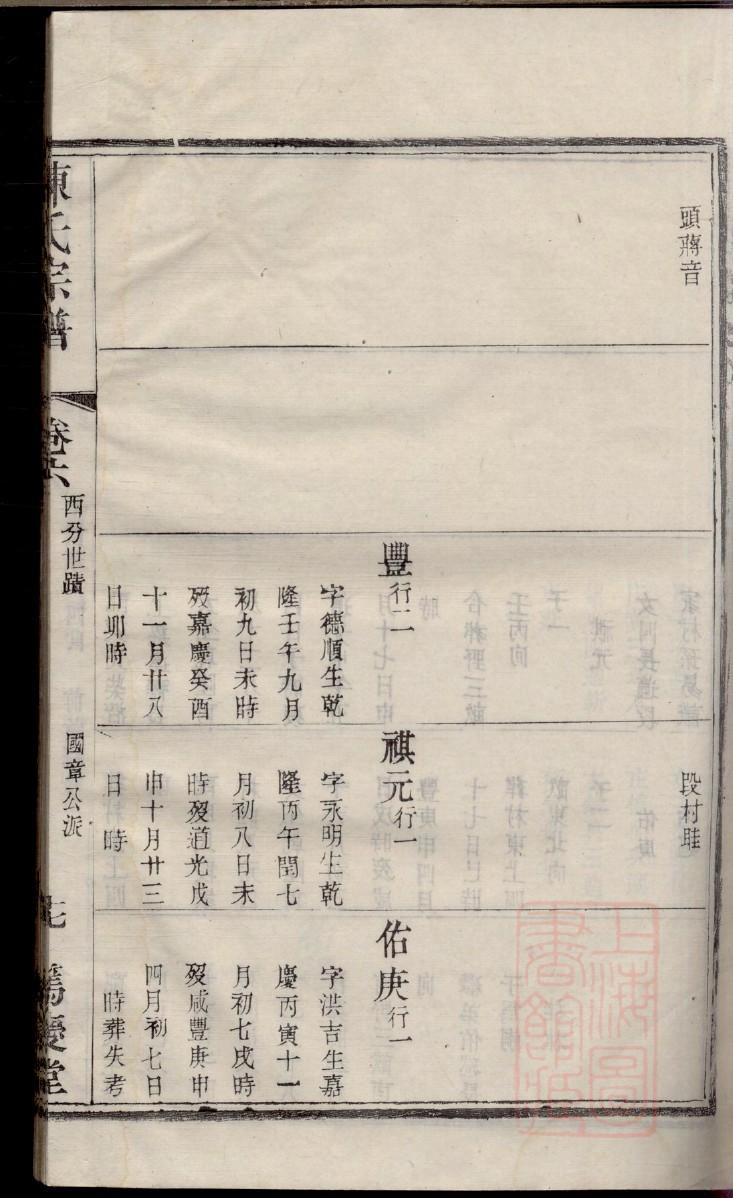 頭蔣音
豐行二
字德順生乾
隆壬午九月
初九日未時
殁嘉慶癸酉
十一月廿八
日卯時
段村眭
祺元行一
字永明生乾
隆丙午閏七
月初八日未
時殁道光戊
申十月廿三
日 時
佑庚行一
字洪吉生嘉
慶丙寅十一
月初七戌時
殁咸豐庚申
四月初七日
時葬失考
陳氏宗譜
卷六
西分世蹟
國章公派
篤慶堂
上海圖書館藏